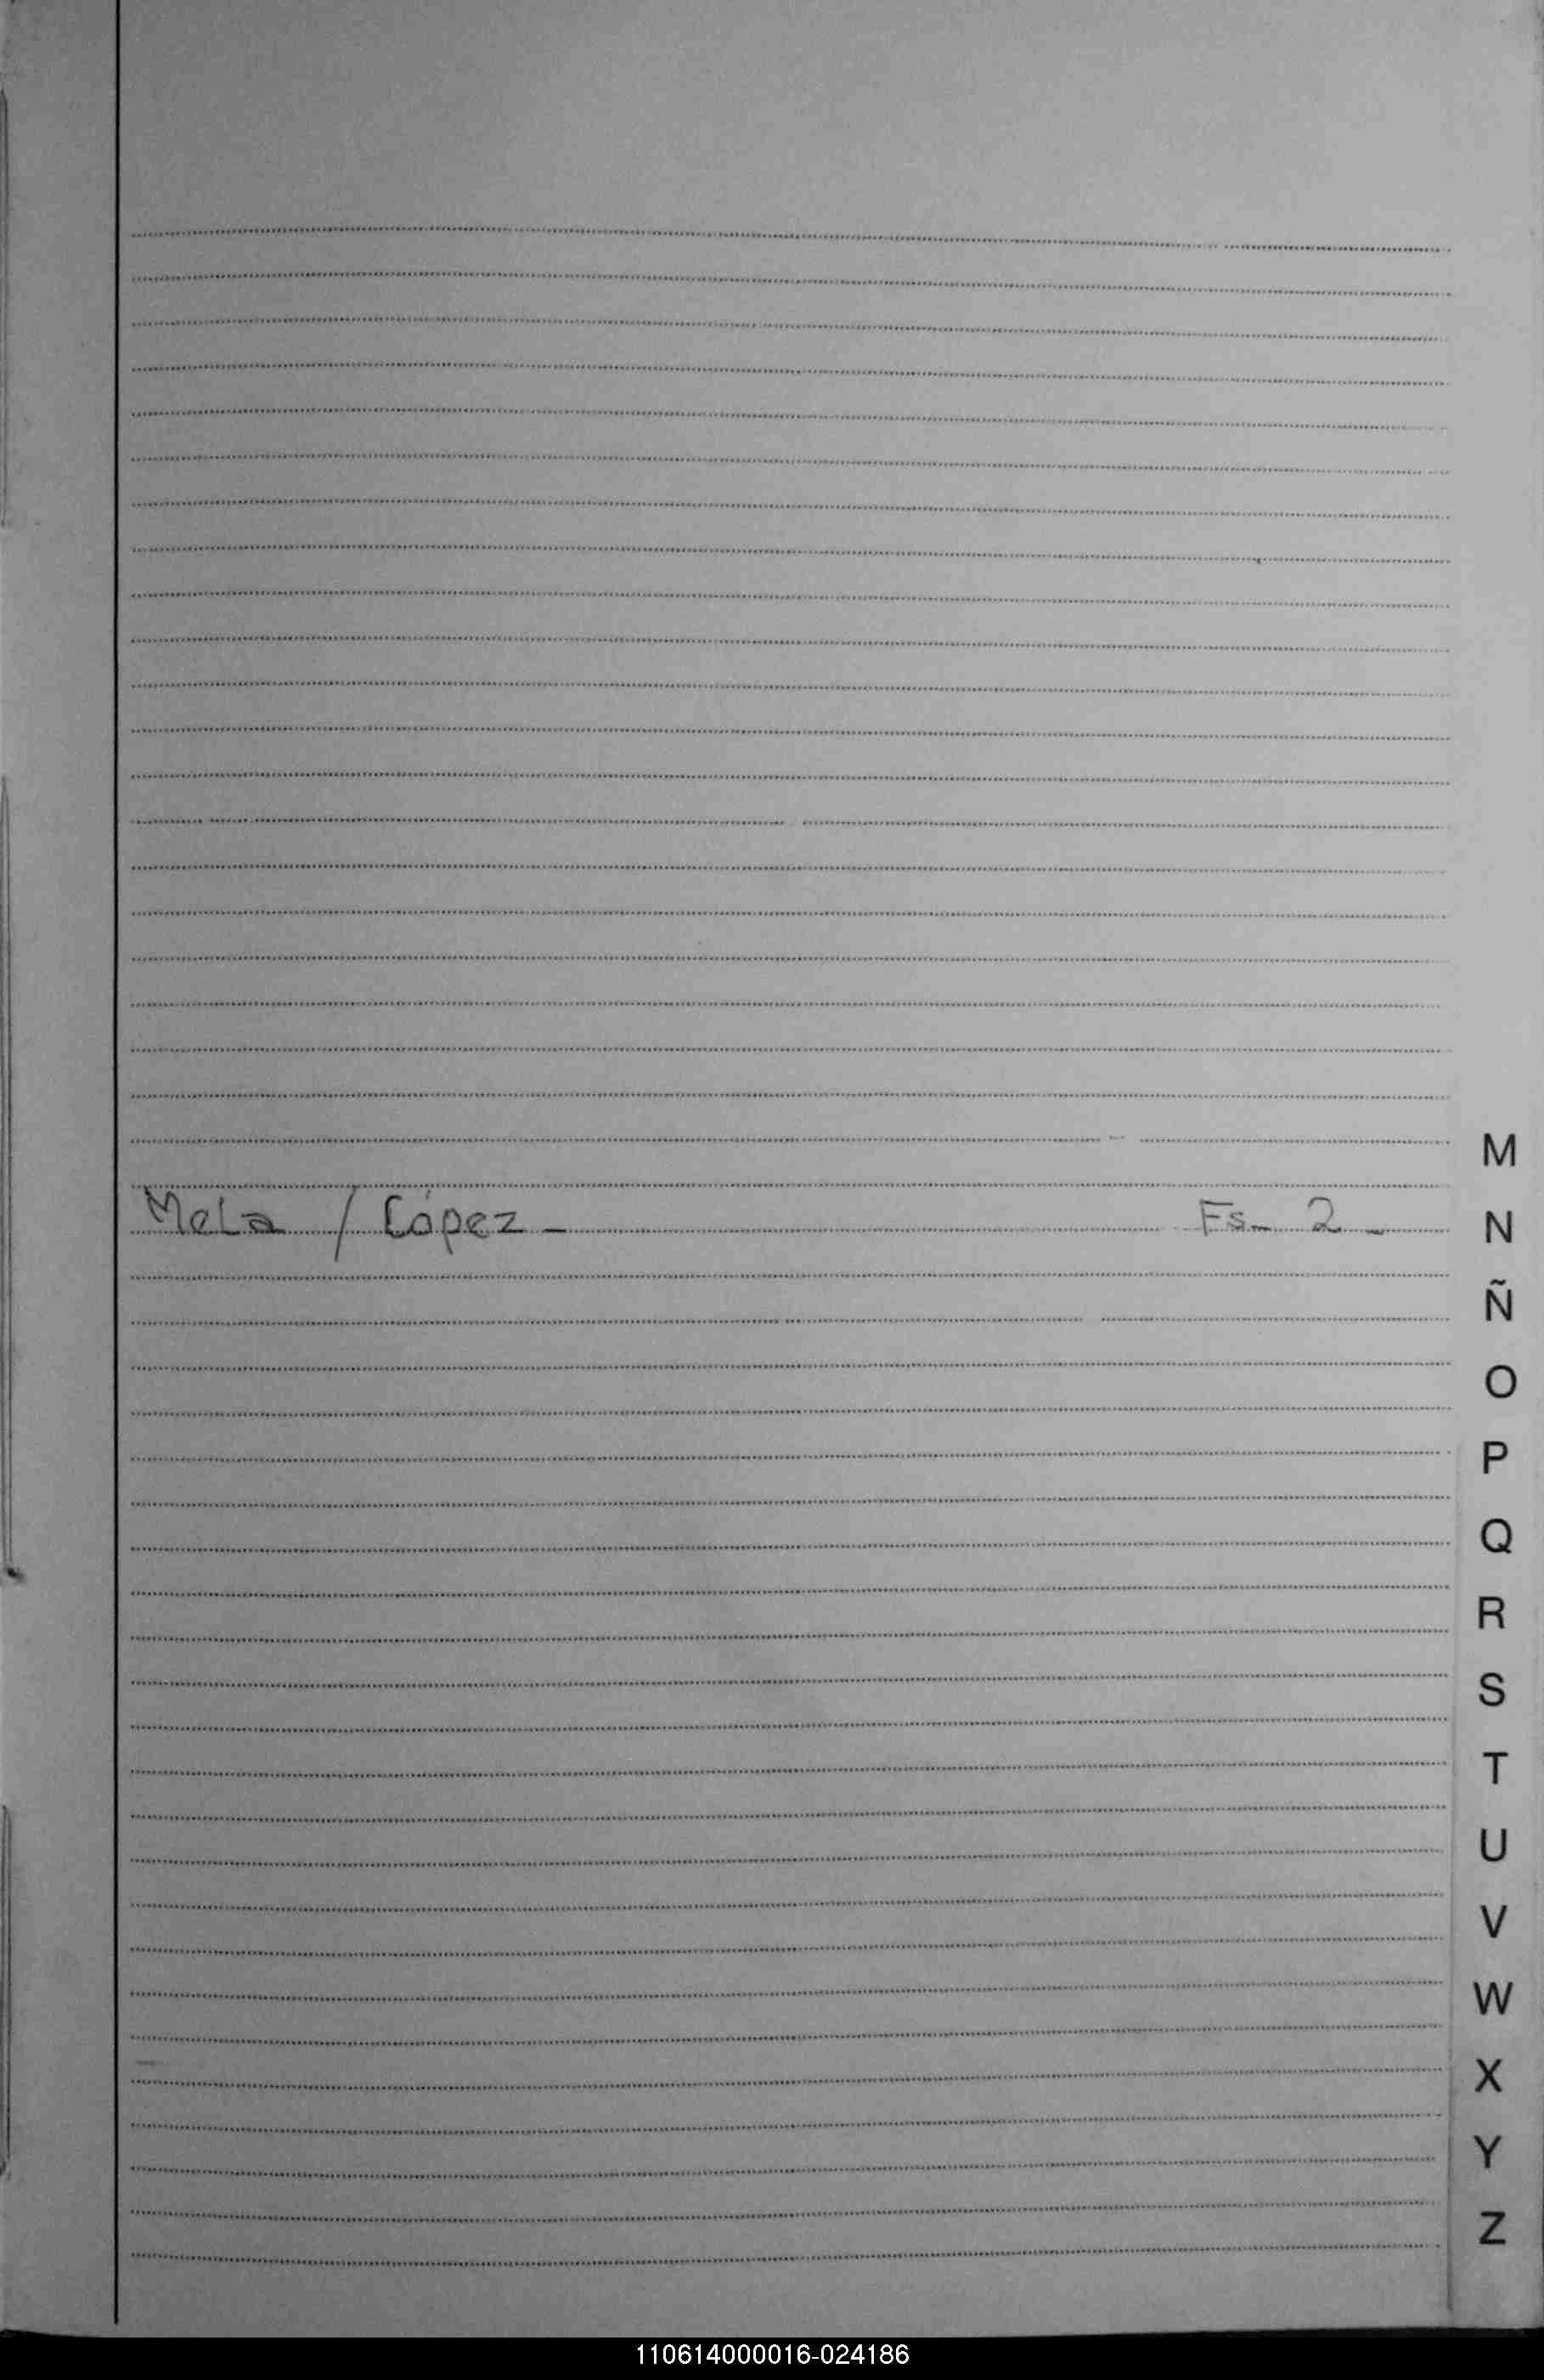 Mela / López - Fs- 2 -
M
N
Ñ
O
P
Q
R
S
T
U
V
W
X
Y
Z
110614000016-024186